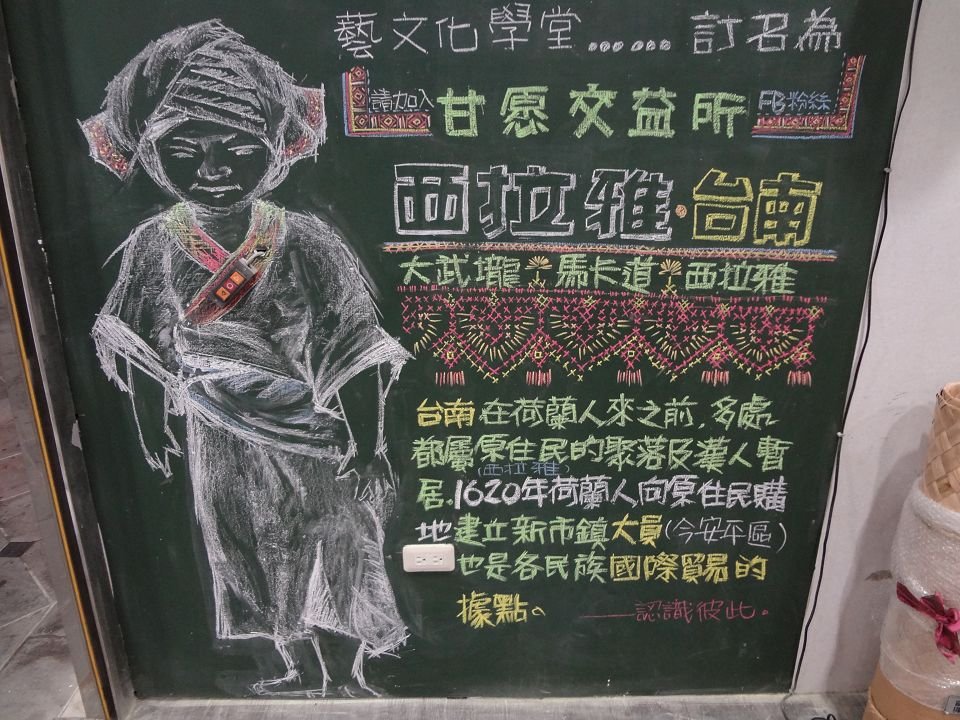 藝文化學堂……訂名為
請加入 甘愿交益所 FB粉絲
西拉雅·台南
大武壠 馬卡道 西拉雅
台南在荷蘭人來之前,多處
都屬原住民的聚落及漢人暫
(西拉雅)
居.1620年荷蘭人向原住民購
地建立新市鎮大員(今安平區)
也是各民族國際貿易的
據點。 ——認識彼此。